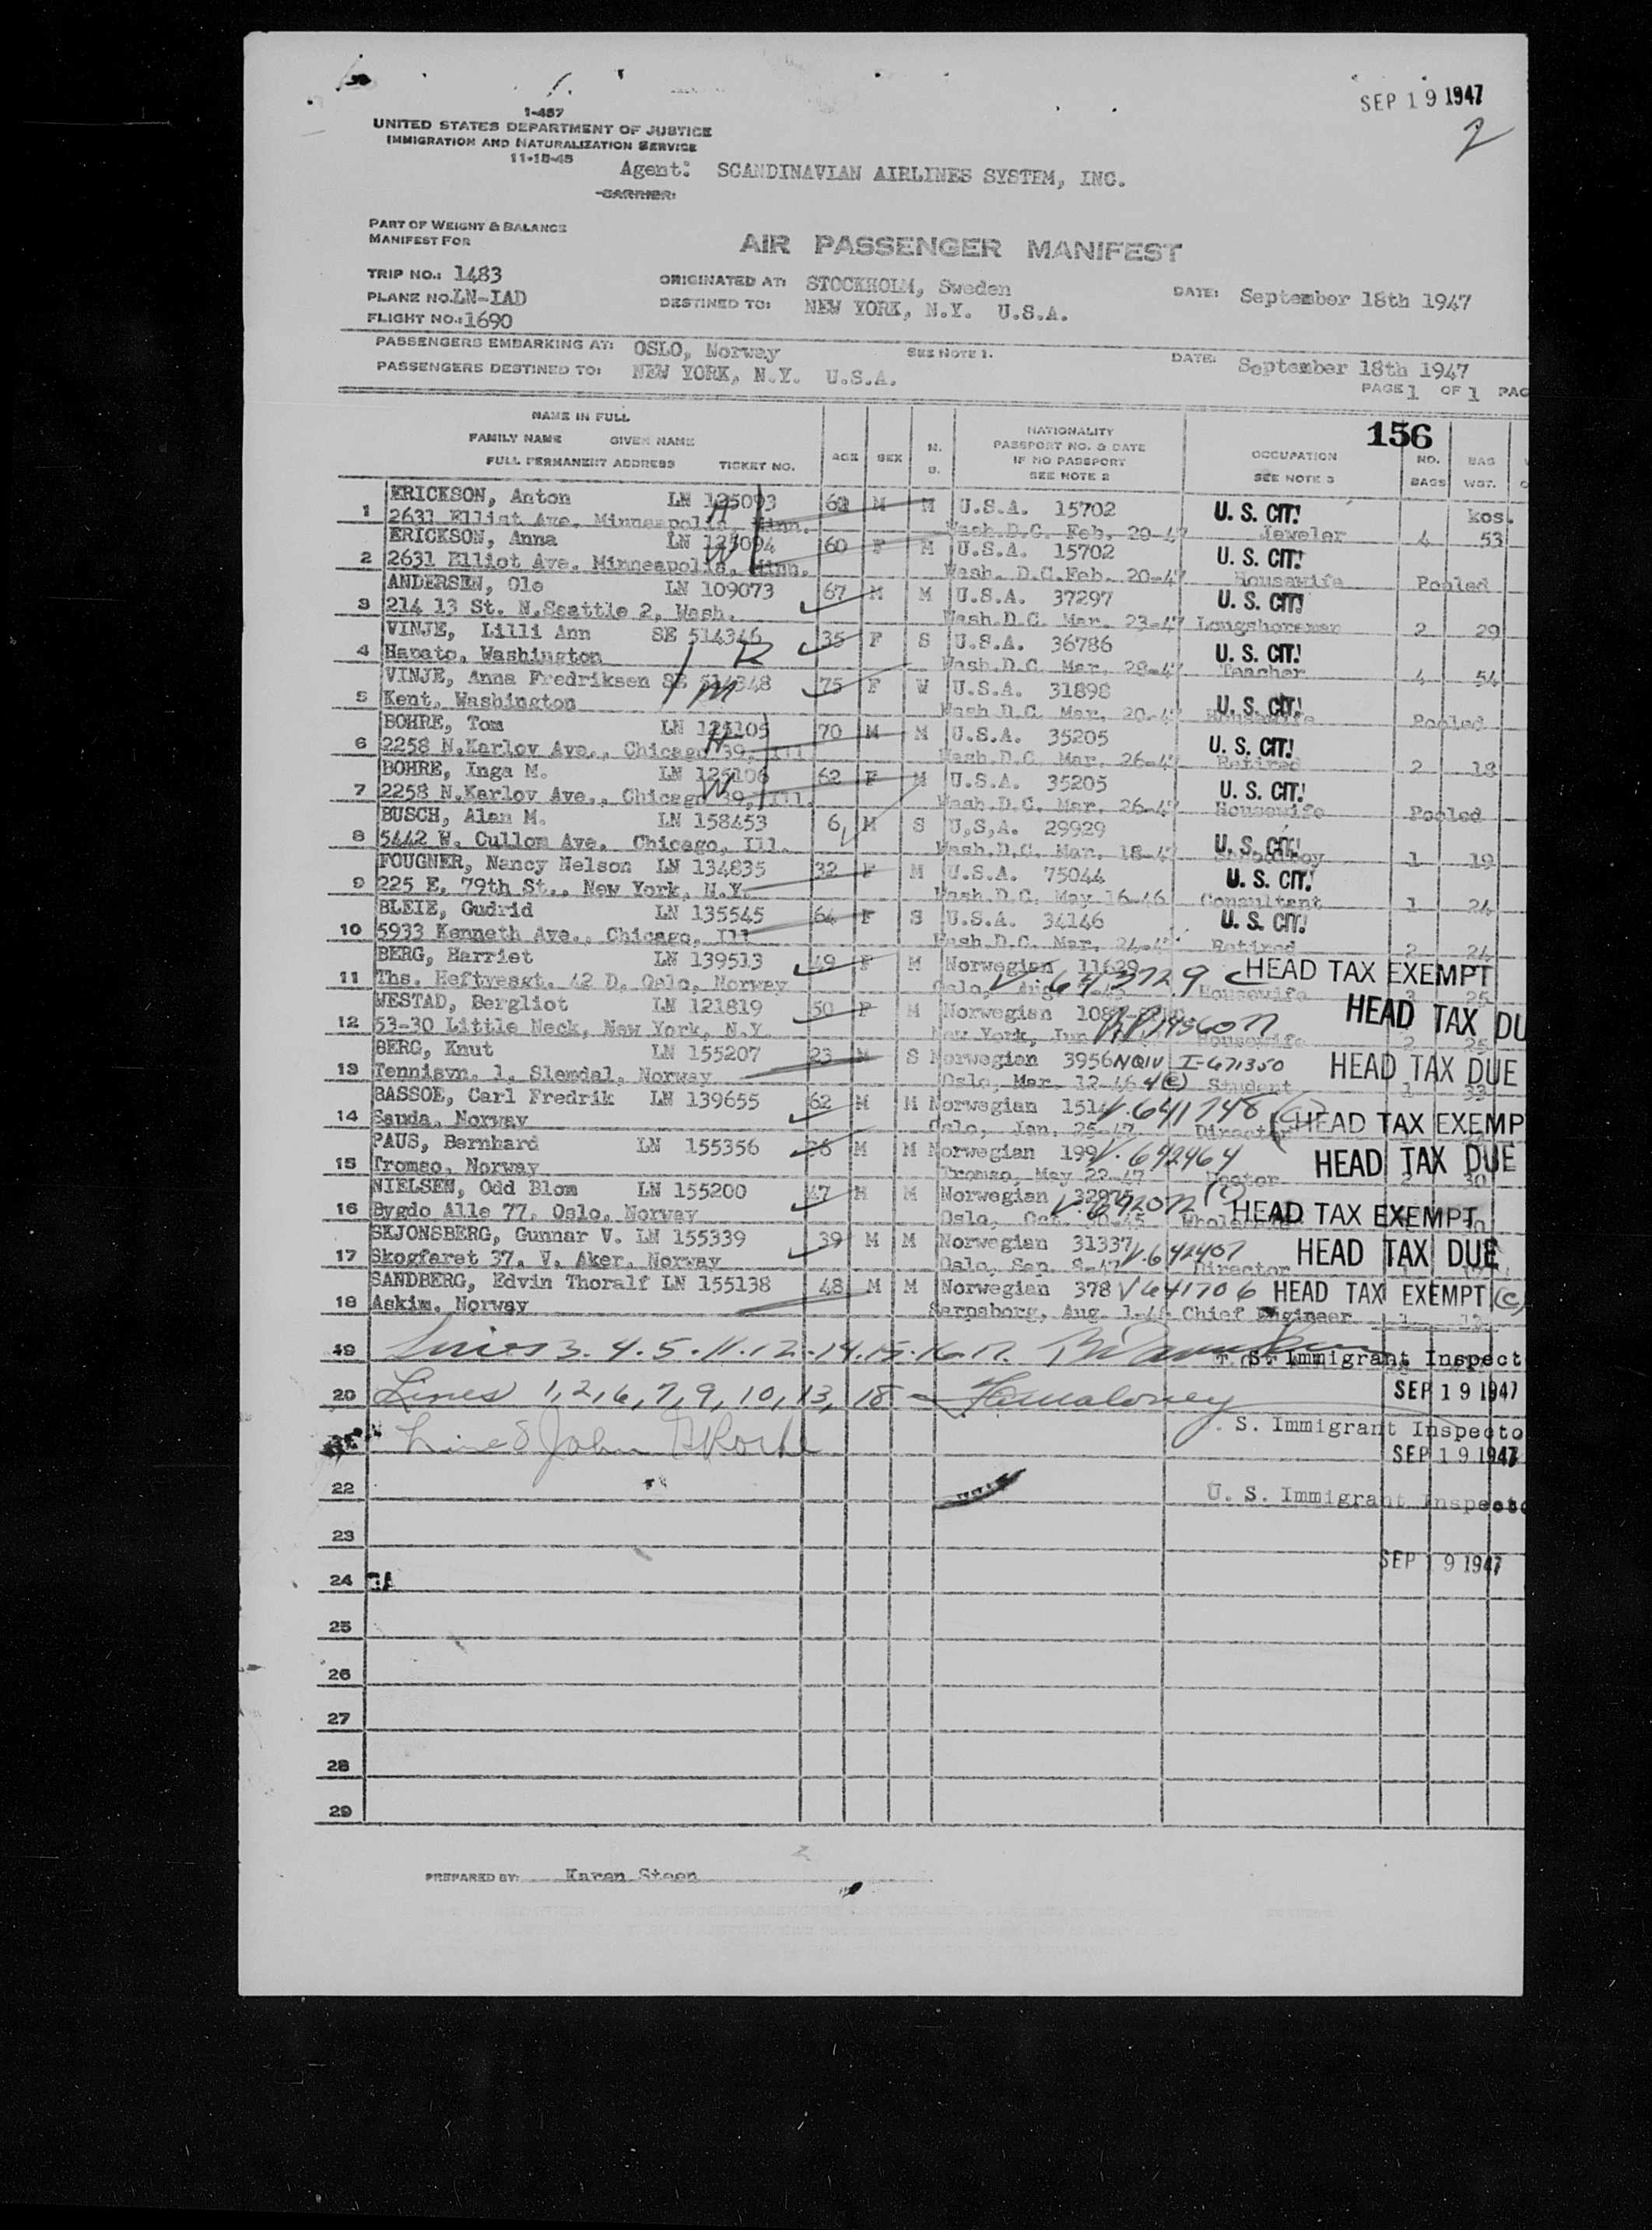 SEP 19 1947
2
1-467
UNITED STATES DEPARTMENT OF JUSTICE
IMMIGRATION AND NATURALIZATION SERVICE
11-15-45
Agent: SCANDINAVIAN AIRLINES SYSTEM, INC.
CARRIER:
PART OF WEIGHT & BALANCE
MANIFEST FOR
AIR PASSENGER MANIFEST
TRIP NO.: 1483 ORIGINATED AT: STOCKHOLM, Sweden DATE: September 18th 1947
PLANE NO. LN-IAD DESTINED TO: NEW YORK, N.Y. U.S.A.
FLIGHT NO.: 1690
PASSENGERS EMBARKING AT: OSLO, Norway SEE NOTE 1. DATE: September 18th 1947
PASSENGERS DESTINED TO: NEW YORK, N.Y. U.S.A.
PAGE 1 OF 1 PAG
156
NAME IN FULL
FAMILY NAME GIVEN NAME
FULL PERMANENT ADDRESS TICKET NO. AGE SEX M. S.
NATIONALITY
PASSPORT NO. & DATE
IF NO PASSPORT
SEE NOTE 2
OCCUPATION
SEE NOTE 3
NO. BAGS BAG WGT.
1 ERICKSON, Anton LN 125093 M M U.S.A. 15702 U. S. CIT. kos.
2631 Elliot Ave. Minneapolis, Minn. Wash.D.C. Feb. 20-47 Jeweler 4 53
2 ERICKSON, Anna LN 125094 60 F M U.S.A. 15702 U. S. CIT.
2631 Elliot Ave. Minneapolis, Minn. Wash. D.C. Feb. 20-47 Housewife Pooled
3 ANDERSEN, Ole LN 109073 67 M M U.S.A. 37297 U. S. CIT.
214 13 St. N.Seattle 2, Wash. Wash.D.C. Mar. 23-47 Longshoreman 2 29
4 VINJE, Lilli Ann SE 514346 35 F S U.S.A. 36786 U. S. CIT.
Washington Wash.D.C. Mar. 28-47 Teacher 4 54
5 VINJE, Anna Fredriksen SE 514348 75 F W U.S.A. 31898 U. S. CIT.
Kent, Washington Wash D.C. Mar. 20-47 Housewife Pooled
6 BOHRE, Tom LN 125105 70 M M U.S.A. 35205 U. S. CIT.
2258 N.Karlov Ave., Chicago 39, Ill Wash.D.C. Mar. 26-47 Retired 2 18
7 BOHRE, Inga M. LN 125106 62 F M U.S.A. 35205 U. S. CIT.
2258 N.Karlov Ave., Chicago 39, Ill. Wash.D.C. Mar. 26-47 Housewife Pooled
8 BUSCH, Alan M. LN 158453 6 M S U,S,A. 29929 U. S. CIT.
5442 W. Cullom Ave. Chicago, Ill. Wash.D.C. Mar. 18-47 1 19
9 FOUGNER, Nancy Nelson LN 134835 32 F M U.S.A. 75044 U. S. CIT.
225 E. 79th St., New York, N.Y. Wash.D.C. May 16-46 Consultant 1 24
10 BLEIE, Gudrid LN 135545 64 F S U.S.A. 34146 U. S. CIT.
5933 Kenneth Ave., Chicago, Ill Wash.D.C. Mar. 24-47 Retired 2 24
11 BERG, Harriet LN 139513 49 F M Norwegian 11629 HEAD TAX EXEMPT
Ths. Heftyesgt. 42 D. Oslo, Norway Oslo, Aug. Housewife
12 WESTAD, Bergliot LN 121819 50 F M Norwegian HEAD TAX DU
53-30 Little Neck, New York, N.Y. New York, Jun Housewife 2 25
13 BERG, Knut LN 155207 23 M S Norwegian 3956 NQIV I-671350 HEAD TAX DUE
Tennisvn. 1, Slemdal, Norway Oslo, Mar. 12-46 4(e) Student 1 33
14 BASSOE, Carl Fredrik LN 139655 62 M M Norwegian V.641748 (C) HEAD TAX EXEMP
Sauda, Norway Oslo, Jan. 25-47 Director
15 PAUS, Bernhard LN 155356 36 M M Norwegian 199 V.642464 HEAD TAX DUE
Tromso, Norway Tromso, May 22-47 2 30
16 NIELSEN, Odd Blom LN 155200 47 M M Norwegian 32975 V.642072 HEAD TAX EXEMPT
Bygdo Alle 77, Oslo, Norway Oslo, Oct. 30-45
17 SKJONSBERG, Gunnar V. LN 155339 39 M M Norwegian 31337 V.642407 HEAD TAX DUE
Skogfaret 37, V. Aker, Norway Oslo, Sep. 8-47 Director
18 SANDBERG, Edvin Thoralf LN 155138 48 M M Norwegian 378 V641706 HEAD TAX EXEMPT (C)
Askim, Norway Sarpsborg, Aug. 1-46 Chief Engineer 1
19 Lines 3.4.5.11.12.14.15.16.17. S. Immigrant Inspect
20 Lines 1,2,6,7,9,10,13,18 - SEP 19 1947
S. Immigrant Inspecto
Line 8 John SEP 19 1947
22 U. S. Immigrant Inspecto
23
SEP 19 1947
24
25
26
27
28
29
PREPARED BY: Karen Steen